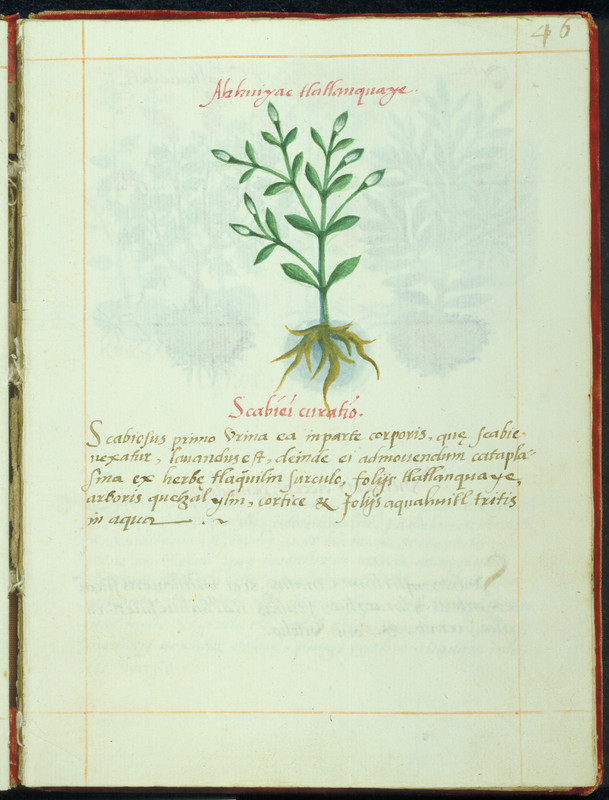 46
Ahhuiyac tlatlanquaye.
Scabiei curatio.
Scabiosus primo urina ea in parte corporis, quę scabie
uexatur, lauandus est, deinde ei admouendum catapla-
sma ex herbę tlaquilin surculo, folijs tlatlanquaye,
arboris quetzalylin, cortice & folijs aquahuitl tritis
in aqua